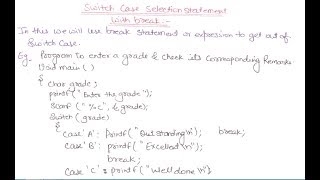 Switch Case Selection Statement
With break :-
In this we will use break statement or expression to get out of
Switch Case.
Eg. Program To enter a grade & check its Corresponding Remarks.
Void main ( )
{ char grade;
printf (" Enter the grade");
Scanf (" %c", &grade);
Switch (grade)
{ Case 'A': Printf (" Outstanding\n"); break;
Case 'B': printf (" Excellent\n");
break;
Case 'C' : printf (" Well done \n");